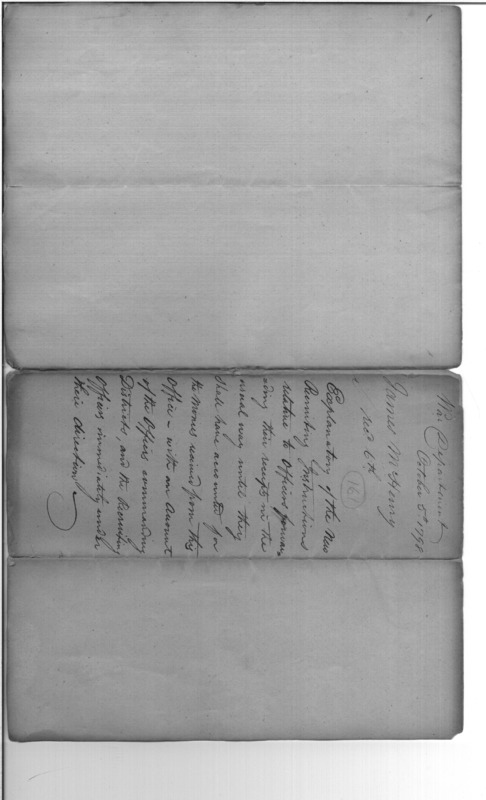 War Department
October 5th 1798
James McHenry
recd 6th
(16)
Explanatory of the New
Recruiting Instructions
relative to Officers forwar
ding their receipts in the
usual way until they
shall have accounted for
the Monies received from this
Office - with an Account
of the Officers commanding
Districts, and the Recruiting
Officers immediately under
their direction